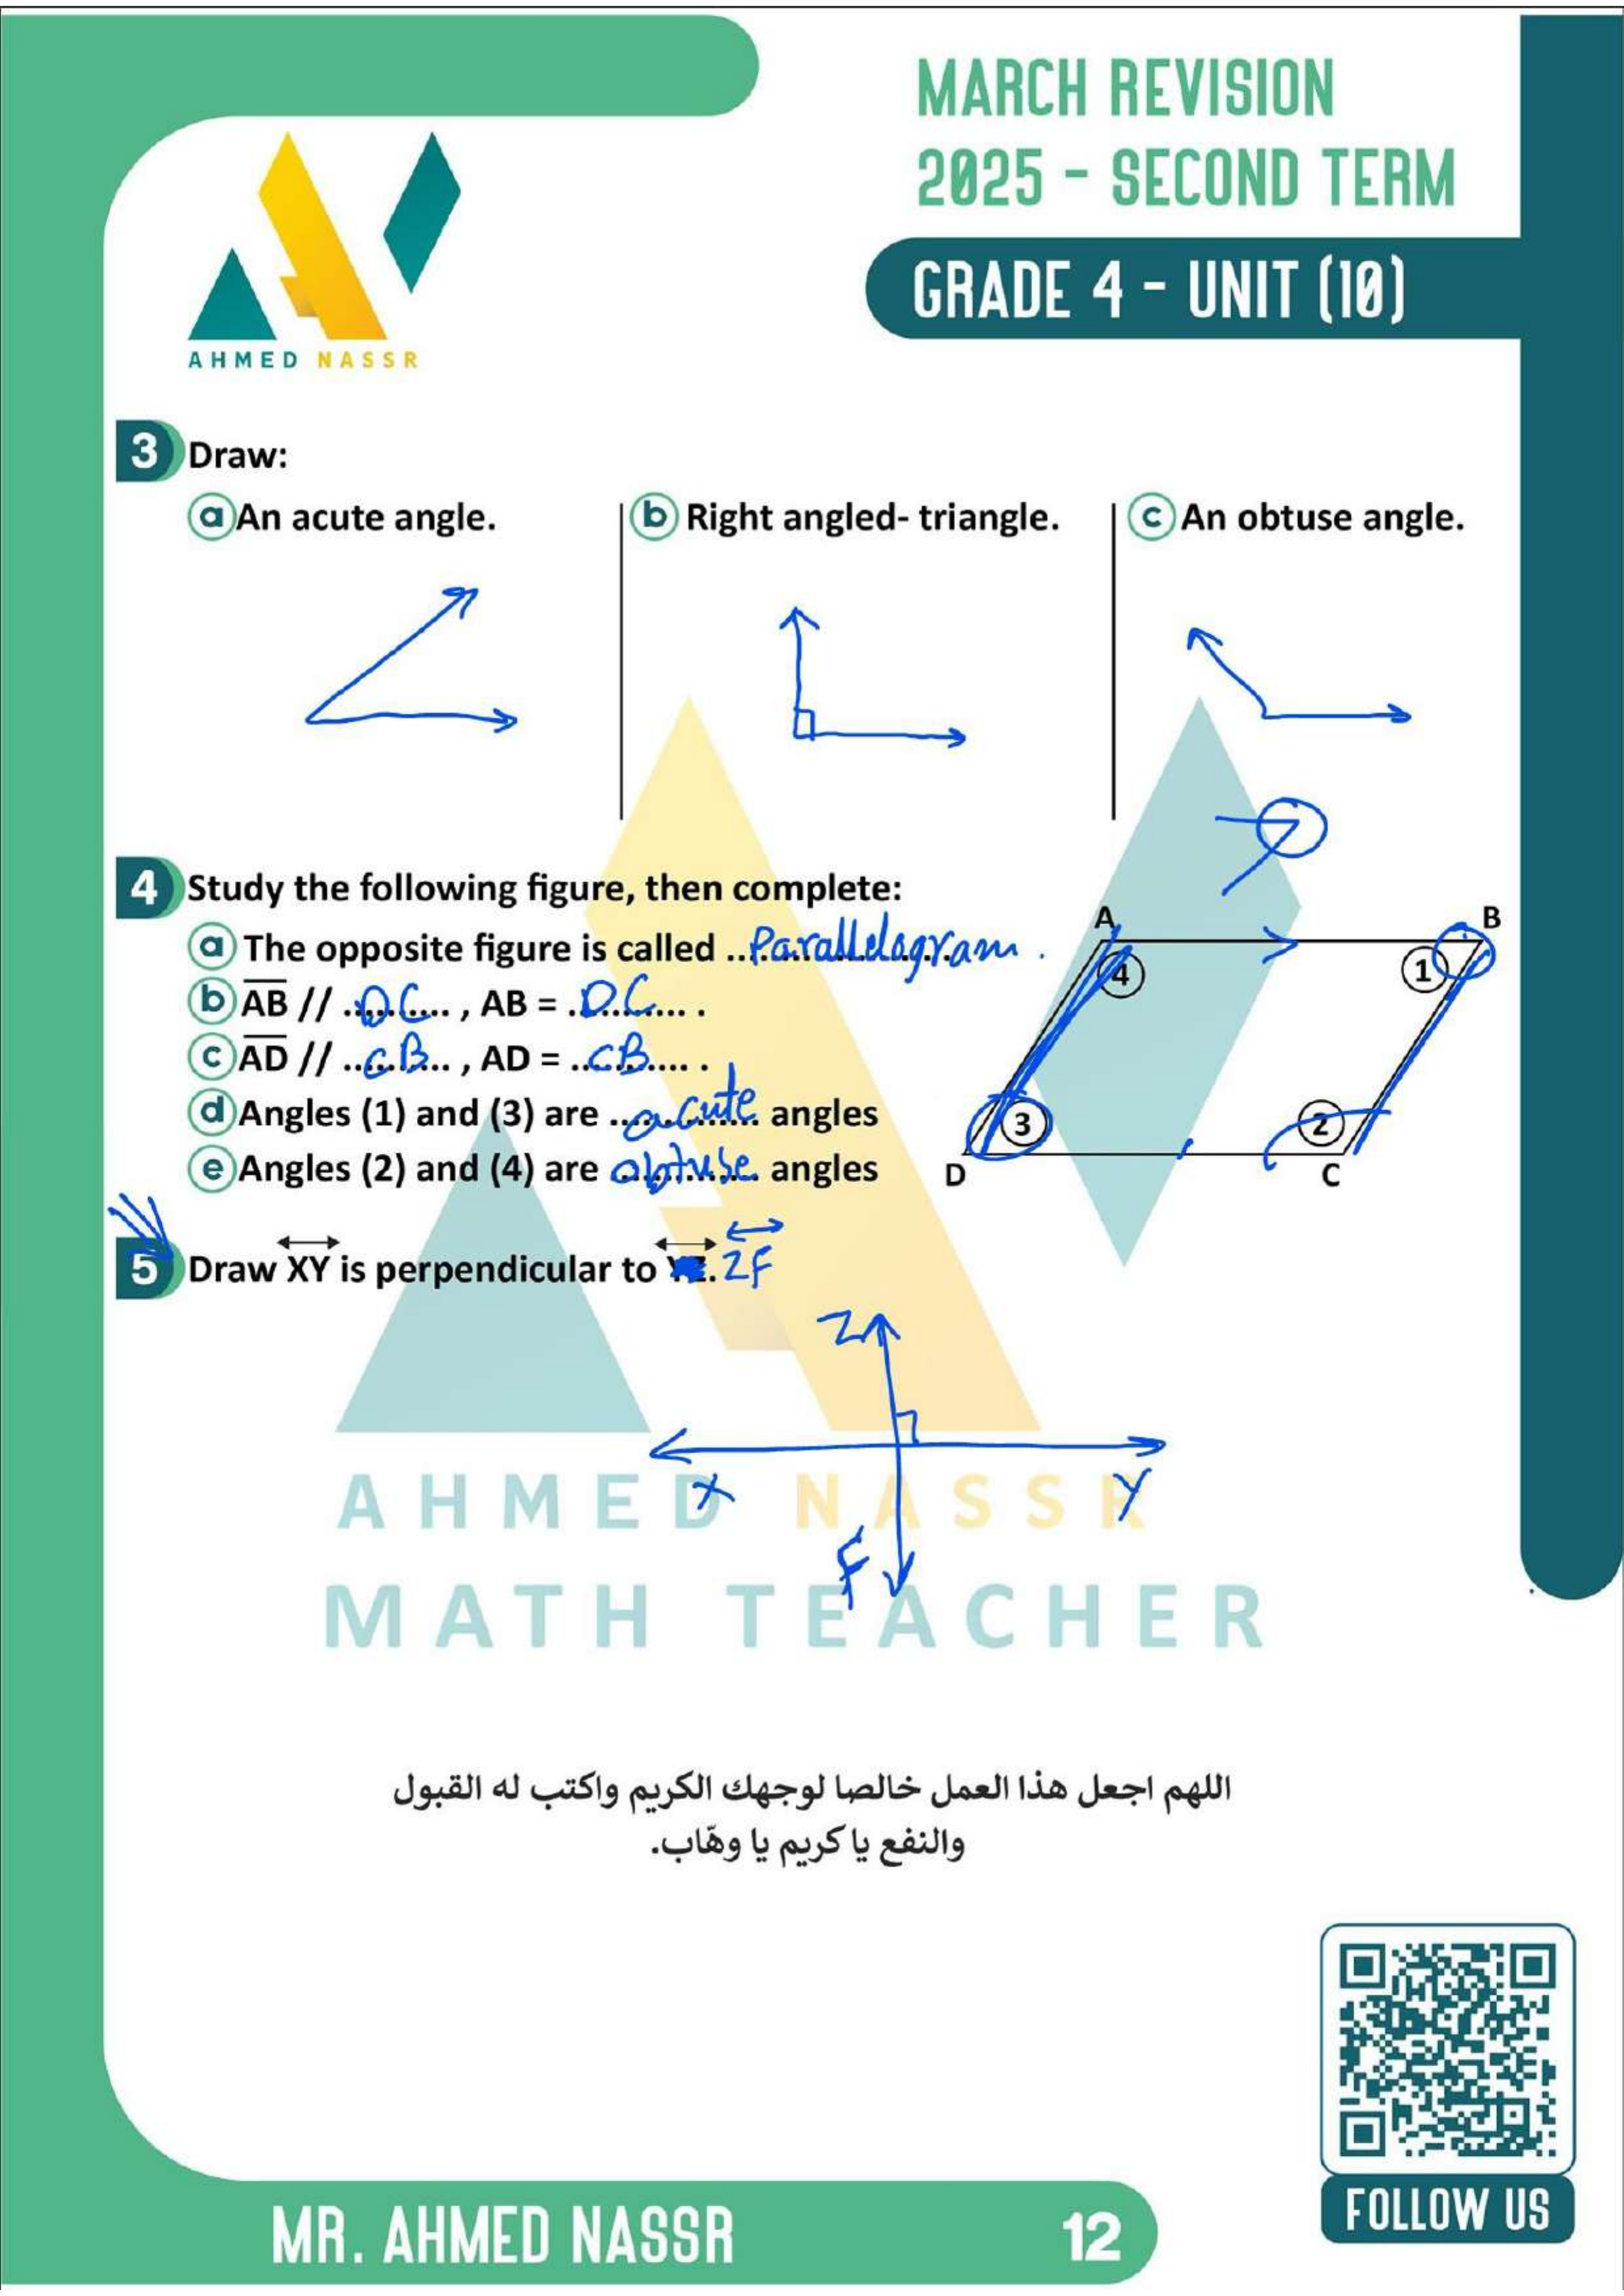 MARCH REVISION
2025 - SECOND TERM
GRADE 4 - UNIT (10)
AHMED NASSR
3 Draw:
a An acute angle.
b Right angled- triangle.
c An obtuse angle.
4 Study the following figure, then complete:
a The opposite figure is called ..Parallelogram .
b AB // ..DC.. , AB = ..DC.. .
c AD // ..CB.. , AD = ..CB.. .
d Angles (1) and (3) are ..acute.. angles
e Angles (2) and (4) are obtuse angles
A
B
4
1
3
2
D
C
5 Draw XY is perpendicular to . ZF
Z
X
Y
F
AHMED NASSR
MATH TEACHER
اللهم اجعل هذا العمل خالصا لوجهك الكريم واكتب له القبول
والنفع يا كريم يا وهّاب.
FOLLOW US
MR. AHMED NASSR
12